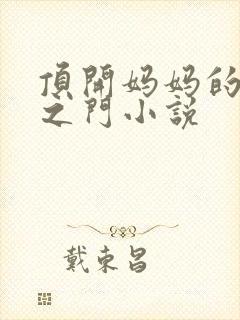 頂開媽媽的
之門小説
戴東昌